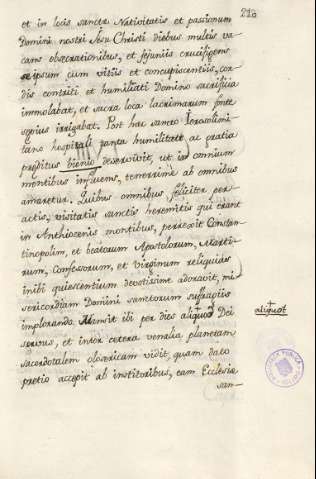 210
et in locis sanctæ Nativitatis et passionum
Domini nostri Jesu Christi diebus multis va-
cans obsecrationibus, et jejuniis crucifigens
se ipsum cum vitiis et concupiscentiis, cor-
dis contriti et humiliati Domino sacrificia
immolabat, et sacra loca lacrimarum fonte
sepius irrigabat. Post hæc sancto Jerosolimi-
tano hospitali tanta humilitate ac gratia
præditus bienio deservivit, ut in omnium
mentibus influens, tenerrime ab omnibus
amaretur. Quibus omnibus feliciter per-
actis, visitatis sanctis heremitis qui erant
in Anthiocenis montibus, perrexit Constan-
tinopolim, et beatorum Apostolorum, Marti-
rum, Confessorum, et Virginum reliquias
inibi quiescentium devotissime adoravit, mi-
sericordiam Domini sanctorum suffragiis
implorando. Mansit ibi per dies aliquod Dei
servus, et inter cetera venalia planetam
aliquot
sacerdotalem olosericam vidit, quam dato
pretio accepit ab institoribus, eam Ecclesiæ
san-